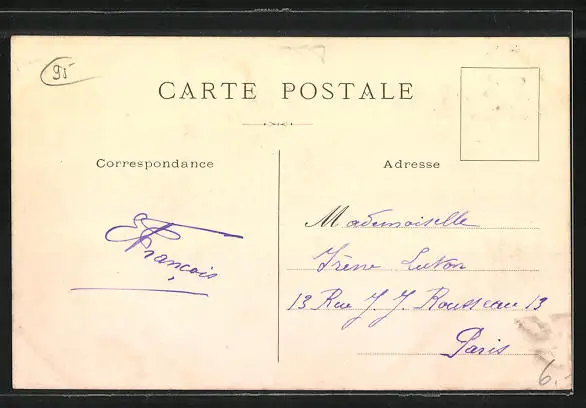 95
CARTE POSTALE
Correspondance
Adresse
François
Mademoiselle
Irène
13 Rue J. J. Rousseau 13
Paris
6.